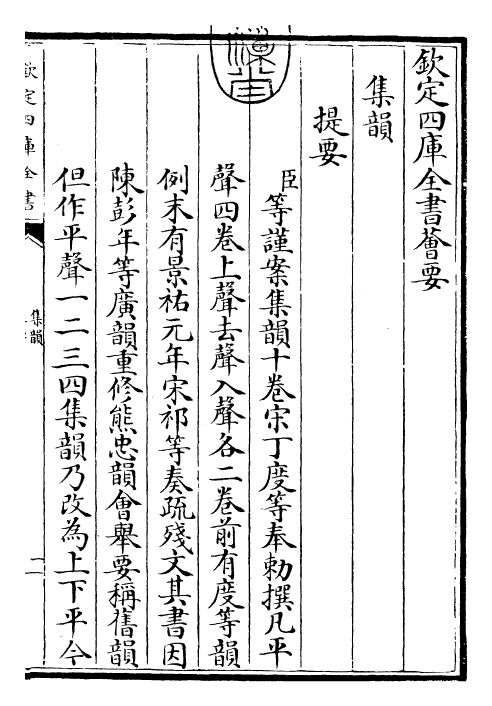 欽定四庫全書薈要
集韻
提要
臣等謹案集韻十卷宋丁度等奉勅撰凡平
聲四卷上聲去聲入聲各二卷前有度等韻
例末有景祐元年宋祁等奏疏殘文其書因
陳彭年等廣韻重修熊忠韻會舉要稱舊韻
但作平聲一二三四集韻乃改為上下平今
欽定四庫全書
集韻